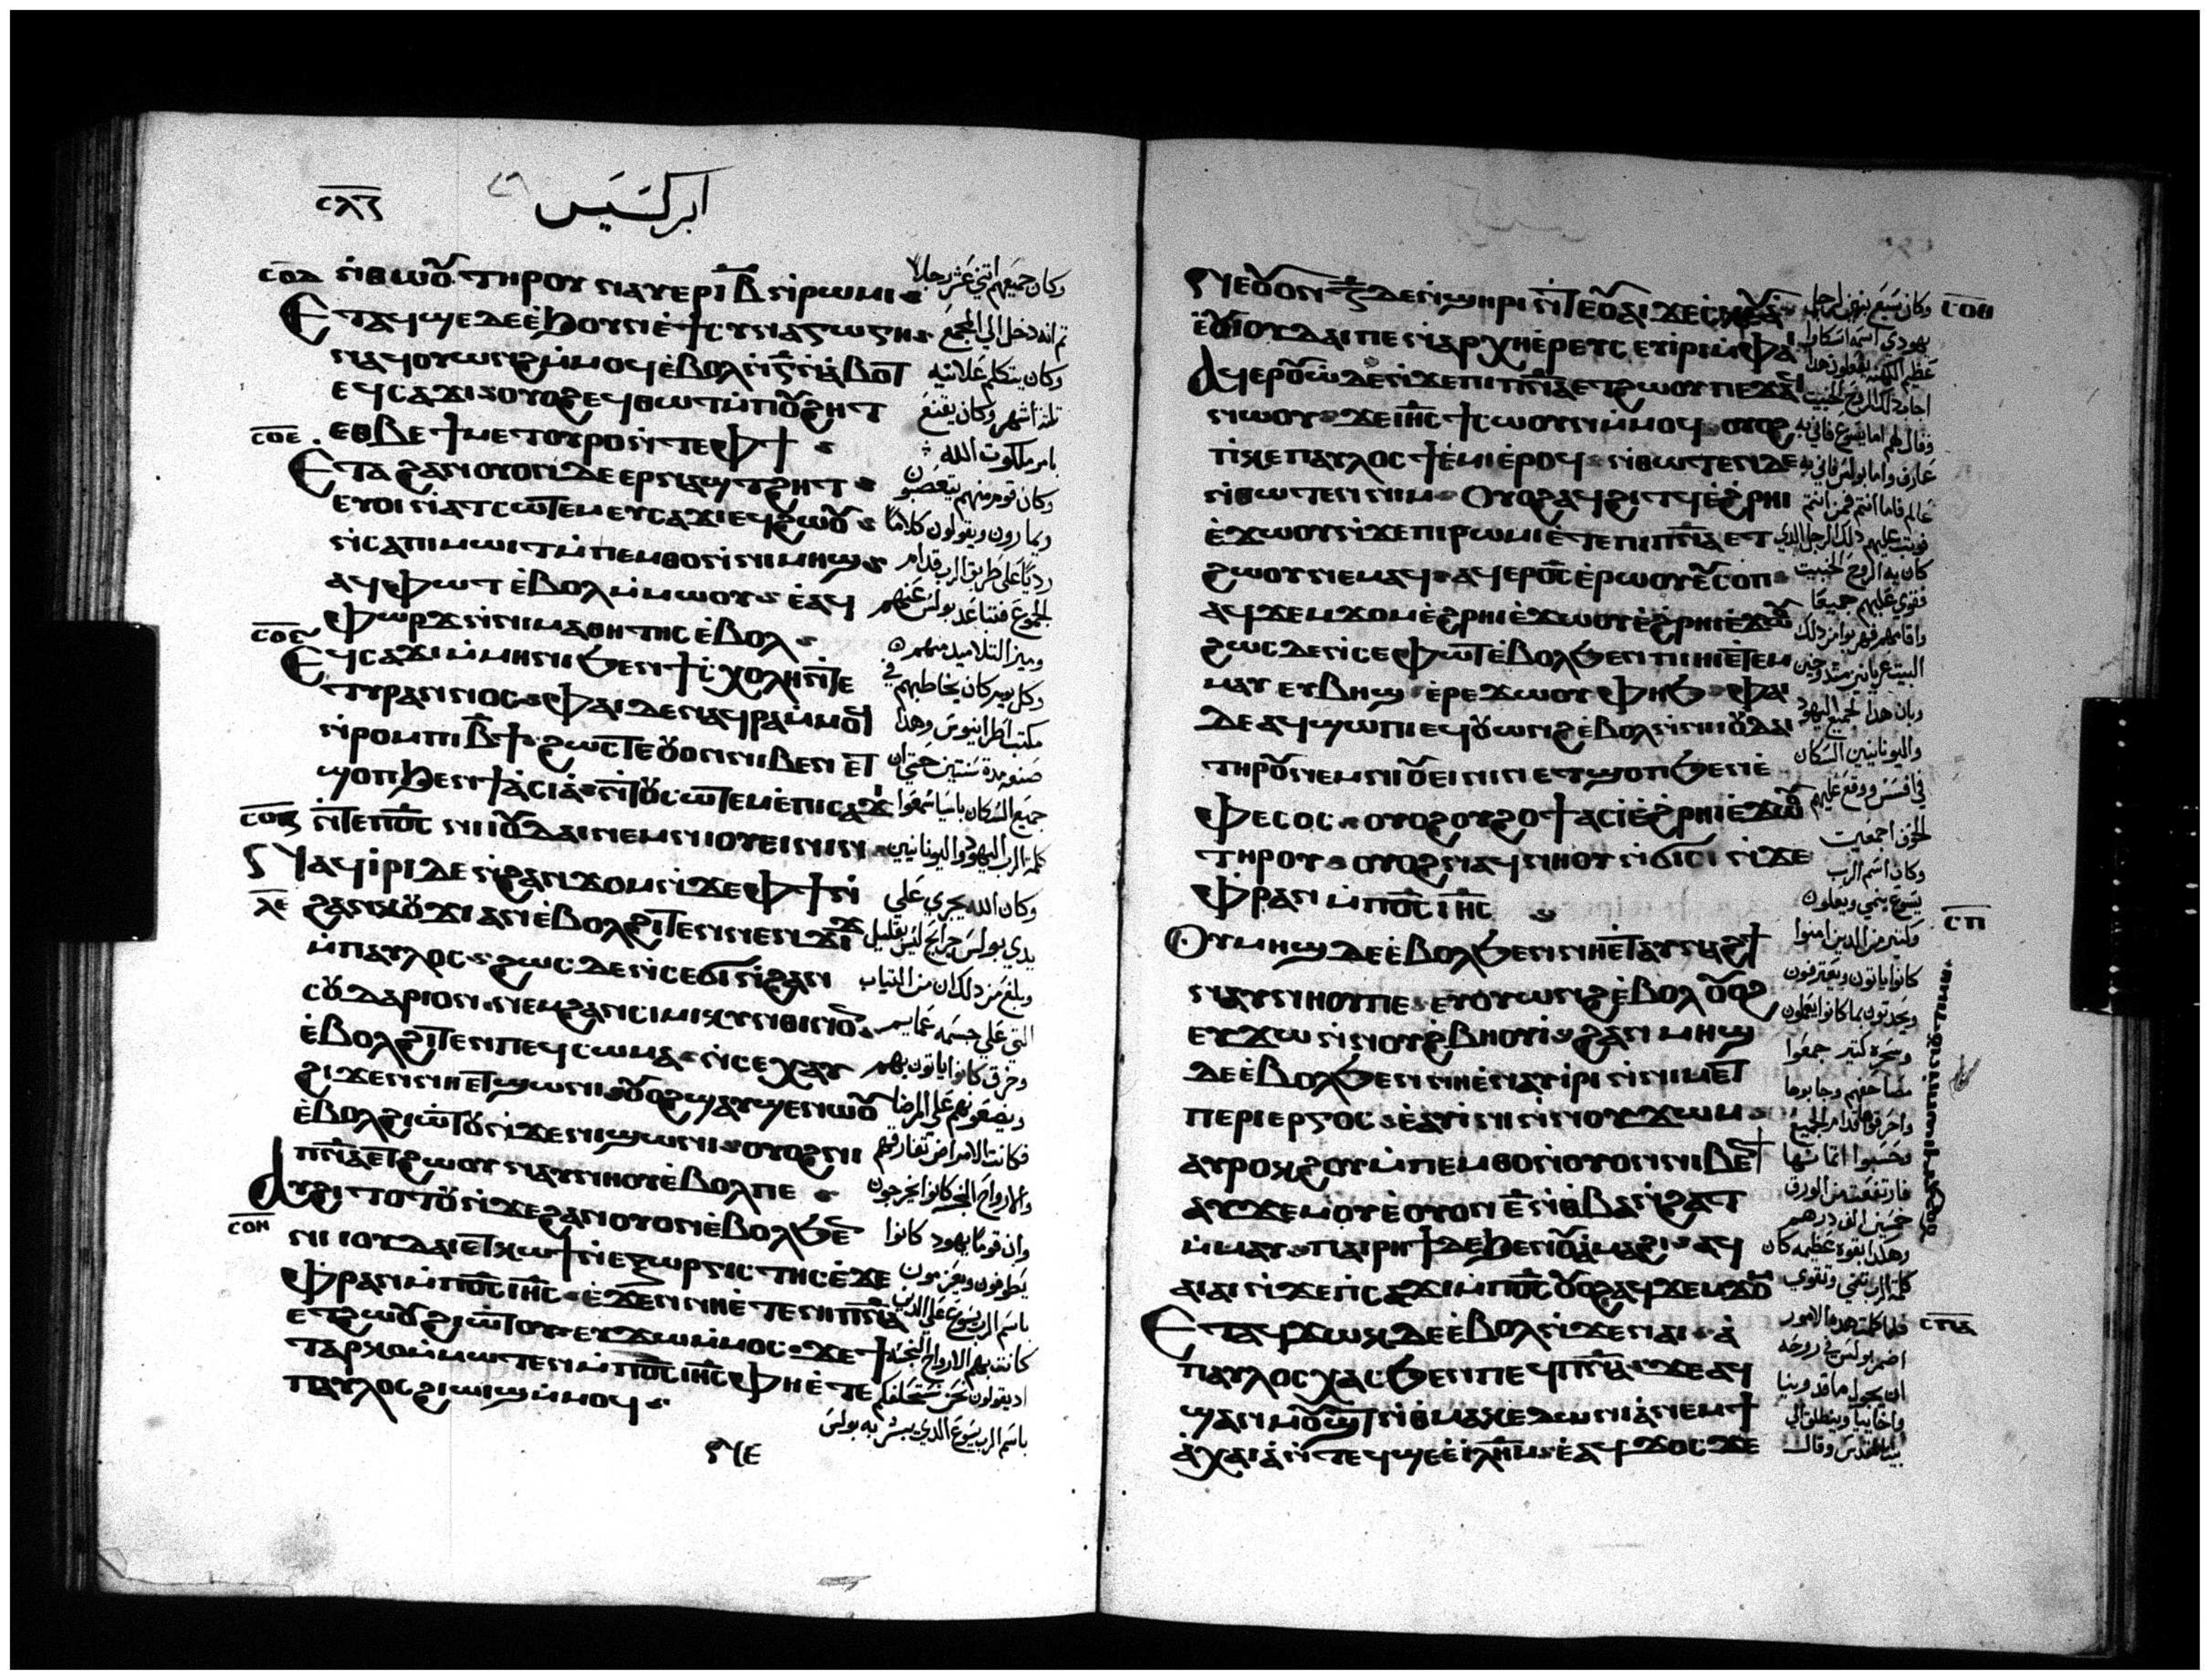 ⲥⲗⲋ
ابركسيس
ⲥⲟⲇ
ⲛ̀ⲑⲱⲟⲩ ⲧⲏⲣⲟⲩ ⲛⲁⲩⲉⲣ ⲓⲃ ⲛ̀ⲣⲱⲙⲓ
Ⲉⲧⲁϥϣⲉ ⲇⲉ ⲉ̀ϧⲟⲩⲛ ⲉ̀ϯⲥⲩⲛⲁⲅⲱⲅⲏ
ⲛⲁϥⲟⲩⲱⲛϩ ⲙ̀ⲙⲟϥ ⲉ̀ⲃⲟⲗ ⲛ̀ⲅ̅ ⲛ̀ⲁ̀ⲃⲟⲧ
ⲉϥⲥⲁϫⲓ ⲟⲩⲟϩ ⲉϥⲑⲱⲧ ⲙ̀ⲡⲟⲩϩⲏⲧ
ⲥⲟⲉ
ⲉⲑⲃⲉ ϯⲙⲉⲧⲟⲩⲣⲟ ⲛ̀ⲧⲉ ⲫϯ
Ⲉⲧⲁ ϩⲁⲛⲟⲩⲟⲛ ⲇⲉ ⲉⲣⲛⲁϣⲧϩⲏⲧ
ⲉⲩⲟⲓ ⲛ̀ⲁⲧⲥⲱⲧⲉⲙ ⲉⲩⲥⲁϫⲓ ⲉϥϩⲱⲟⲩ
ⲛ̀ⲥⲁ ⲡⲓⲙⲱⲓⲧ ⲙ̀ⲡⲉⲙⲑⲟ ⲛ̀ⲛⲓⲙⲏϣ
ⲁϥⲫⲱⲧ ⲉ̀ⲃⲟⲗ ⲙ̀ⲙⲱⲟⲩ ⲉ̀ⲁϥ
ⲫⲱⲣϫ ⲛ̀ⲛⲓⲙⲁⲑⲏⲧⲏⲥ ⲉ̀ⲃⲟⲗ
ⲥⲟⲋ
Ⲉϥⲥⲁϫⲓ ⲙ̀ⲙⲏⲛⲓ ϧⲉⲛ ϯⲥ̀ⲭⲟⲗⲏ ⲛ̀ⲧⲉ
ⲧⲩⲣⲁⲛⲛⲟⲥ ⲫⲁⲓ ⲇⲉ ⲛⲁϥⲣⲁ ⲙ̀ⲙⲟϥ
ⲛ̀ⲣⲟⲙⲡⲓ ⲃ̅ϯ ϩⲱⲥⲧⲉ ⲟⲩⲟⲛ ⲛⲓⲃⲉⲛ ⲉⲧ
ϣⲟⲡ ϧⲉⲛ ϯⲁ̀ⲥⲓⲁ̀ ⲛ̀ⲧⲟⲩⲥⲱⲧⲉⲙ ⲉ̀ⲡⲥⲁϫⲓ
ⲥⲟⲍ
ⲛ̀ⲧⲉ ⲡⲟ̅ⲥ̅ ⲛⲓⲓⲟⲩⲇⲁⲓ ⲛⲉⲙ ⲛⲓⲟⲩⲉⲓⲛⲓⲛ
Ⲛⲁϥⲓⲣⲓ ⲇⲉ ⲛ̀ϩⲁⲛϫⲟⲙ ⲛ̀ϫⲉ ⲫϯ ⲛ̀
ⲗⲉ
ϩⲁⲛⲕⲟⲩϫⲓ ⲁⲛ ⲉ̀ⲃⲟⲗ ϩⲓⲧⲉⲛ ⲛⲉⲛϫⲓϫ
ⲙ̀ⲡⲁⲩⲗⲟⲥ ϩⲱⲥ ⲇⲉ ⲛ̀ⲥⲉϭⲓ ⲛ̀ϩⲁⲛ
ⲥⲟⲩⲇⲁⲣⲓⲟⲛ ⲛⲉⲙ ϩⲁⲛⲥⲓⲙⲓⲕⲩⲛⲑⲓⲛⲟⲛ
ⲉ̀ⲃⲟⲗ ϩⲓⲧⲉⲛ ⲡⲉϥⲥⲱⲙⲁ ⲛ̀ⲥⲉⲭⲁⲩ
ϩⲓϫⲉⲛ ⲛⲏⲉⲧϣⲱⲛⲓ ⲟⲩⲟϩ ϣⲁⲩϣⲉⲛⲱⲟⲩ
ⲉ̀ⲃⲟⲗ ϩⲓⲱⲧⲟⲩ ⲛ̀ϫⲉ ⲛⲓϣⲱⲛⲓ ⲟⲩⲟϩ ⲛⲓ
ⲡⲛ̅ⲁ̅ ⲉⲧϩⲱⲟⲩ ⲛⲁⲩⲛⲏⲟⲩ ⲉ̀ⲃⲟⲗ ⲡⲉ
Ⲁⲩϩⲓⲧⲟⲧⲟⲩ ⲛ̀ϫⲉ ϩⲁⲛⲟⲩⲟⲛ ⲉ̀ⲃⲟⲗ ϧⲉⲛ
ⲥⲟⲏ
ⲛⲓⲓⲟⲩⲇⲁⲓ ⲉⲧⲕⲱϯ ⲛ̀ⲉⲝⲱⲣⲅⲓⲥⲧⲏⲥ ⲉ̀ϫⲉ
ⲫⲣⲁⲛ ⲙ̀ⲡⲟ̅ⲥ̅ ⲓⲏ̅ⲥ̅ ⲉ̀ϫⲉⲛ ⲛⲏⲉ̀ⲧⲉ ⲛⲓⲡⲛ̅ⲁ̅
ⲉⲧϩⲱⲟⲩ ϩⲓⲱⲧⲟⲩ ⲉⲩϫⲱ ⲙ̀ⲙⲟⲥ ϫⲉ ϯ
ⲧⲁⲣⲕⲟ ⲙ̀ⲙⲱⲧⲉⲛ ⲙ̀ⲡⲟ̅ⲥ̅ ⲓⲏ̅ⲥ̅ ⲫⲏⲉ̀ⲧⲉ
ⲡⲁⲩⲗⲟⲥ ϩⲓⲱⲓϣ ⲙ̀ⲙⲟϥ
وكان جميعهم اثني عشر رجلا
ثم انه دخل الي المجمع
وكان يتكلم علانية
ثلثة اشهر وكان يقنع
بامر ملكوت الله
وكان قوم منهم يتعصبون
ويمارون ويقولون كلاما
رديا علي طريق الرب قدام
الجموع فتباعد بولس عنهم
وميز التلاميد منهم
وكل يوم كان يخاطبهم في
مكتب اطرانيوس وهدا
صنعه مدة سنتين حتي ان
جميع السكان باسيا سمعوا
كلمة الرب اليهود واليونانيين
وكان الله يجري علي
يدي بولس جرايح ليس بقليل
وبلغ من دلك ان من التياب
التي علي جسمه عمايم
وخرق كانوا ياتون بهم
ويضعونهم علي المرضا
فكانت الامراض تفارقهم
والارواح النجسة كانوا يخرجون
وان قوما يهود كانوا
يطوفون ويعزمون
باسم الرب يسوع علي الدين
كانت بهم الارواح النجسة
اد يقولون نحن نستحلفكم
باسم الرب يسوع الدي يبشر به بولس
ⲛⲉ
Ⲛⲉⲟⲩⲟⲛ ⲍ̅ ⲇⲉ ⲛ̀ϣⲏⲣⲓ ⲛ̀ⲧⲉ ⲟⲩⲁⲓ ϫⲉ ⲥⲕⲉⲩⲁ
ⲉ̀ⲟⲩⲓⲟⲩⲇⲁⲓ ⲡⲉ ⲛ̀ⲁⲣⲭⲏⲉ̀ⲣⲉⲩⲥ ⲉⲩⲓⲣⲓ ⲙ̀ⲫⲁⲓ
Ⲁϥⲉⲣⲟⲩⲱ̀ ⲇⲉ ⲛ̀ϫⲉ ⲡⲓⲡⲛ̅ⲁ̅ ⲉⲧϩⲱⲟⲩ ⲡⲉϫⲁϥ
ⲛⲱⲟⲩ ϫⲉ ⲓⲏ̅ⲥ̅ ϯⲥⲱⲟⲩⲛ ⲙ̀ⲙⲟϥ ⲟⲩⲟϩ
ⲡⲓⲕⲉⲡⲁⲩⲗⲟⲥ ϯⲉ̀ⲙⲓ ⲉ̀ⲣⲟϥ ⲛ̀ⲑⲱⲧⲉⲛ ⲇⲉ
ⲛ̀ⲑⲱⲧⲉⲛ ⲛⲓⲙ Ⲟⲩⲟϩ ⲁϥϩⲓⲧϥ ⲉ̀ϩ̀ⲣⲏⲓ
ⲉ̀ϫⲱⲟⲩ ⲛ̀ϫⲉ ⲡⲓⲣⲱⲙⲓ ⲉ̀ⲧⲉ ⲡⲓⲡⲛ̅ⲁ̅ ⲉⲧ
ϩⲱⲟⲩ ⲛⲉⲙⲁϥ ⲁϥⲉⲣⲟ̅ⲥ̅ ⲉ̀ⲣⲱⲟⲩ ⲉⲩⲥⲟⲡ
ⲁϥϫⲉⲙϫⲟⲙ ⲉ̀ϩⲣⲏⲓ ⲉ̀ϫⲱⲟⲩ ⲉ̀ϩⲣⲏⲓ ⲉ̀ϫⲱⲟⲩ
ϩⲱⲥ ⲇⲉ ⲛ̀ⲥⲉⲫⲱⲧ ⲉ̀ⲃⲟⲗ ϧⲉⲛ ⲡⲓⲏⲓ ⲉ̀ⲧⲉⲙ
ⲙⲁⲩ ⲉⲩⲃⲏϣ ⲉ̀ⲣⲉ ϫⲱⲟⲩ ⲫⲏϧ ⲫⲁⲓ
ⲇⲉ ⲁϥϣⲱⲡⲓ ⲉϥⲟⲩⲱⲛϩ ⲉ̀ⲃⲟⲗ ⲛ̀ⲛⲓⲓⲟⲩⲇⲁⲓ
ⲧⲏⲣⲟⲩ ⲛⲉⲙ ⲛⲓⲟⲩⲉⲓⲛⲓⲛ ⲉⲧϣⲟⲡ ϧⲉⲛ ⲉ̀
ⲫⲉⲥⲟⲥ ⲟⲩⲟϩ ⲟⲩϩⲟϯ ⲁⲥⲓ̀ ⲉ̀ϩ̀ⲣⲏⲓ ⲉ̀ϫⲱⲟⲩ
ⲧⲏⲣⲟⲩ ⲟⲩⲟϩ ⲛⲁϥⲛⲏⲟⲩ ⲛ̀ϭⲓⲥⲓ ⲛ̀ϫⲉ
ⲫⲣⲁⲛ ⲙ̀ⲡⲟ̅ⲥ̅ ⲓⲏ̅ⲥ̅
Ⲟⲩⲙⲏϣ ⲇⲉ ⲉ̀ⲃⲟⲗ ϧⲉⲛ ⲛⲏⲉ̀ⲧⲁⲩⲛⲁϩϯ
ⲛⲁⲩⲛⲏⲟⲩ ⲡⲉ ⲉⲩⲟⲩⲱⲛϩ ⲉ̀ⲃⲟⲗ ⲟⲩⲟϩ
ⲉⲩϫⲱ ⲛ̀ⲛⲟⲩϩ̀ⲃⲏⲟⲩⲓ̀ ϩⲁⲛⲙⲏϣ
ⲇⲉ ⲉ̀ⲃⲟⲗ ϧⲉⲛ ⲛⲏⲉ̀ⲛⲁⲩⲓ̀ⲣⲓ ⲛ̀ⲛⲓⲙⲉⲧ
ⲡⲉⲣⲓⲉⲣⲅⲟⲥ ⲉ̀ⲁⲩⲓ̀ⲛⲓ ⲛ̀ⲛⲟⲩϫⲱⲙ
ⲁⲩⲣⲟⲕϩⲟⲩ ⲙ̀ⲡⲉⲙⲑⲟ ⲛ̀ⲟⲩⲟⲛ ⲛⲓⲃⲉⲛ
ⲁⲩϫⲉⲙⲟⲩ ⲉ̀ⲟⲩⲟⲛ ⲉ̅ ⲛ̀ⲑⲃⲁ ⲛ̀ϩⲁⲧ
ⲙ̀ⲙⲁⲩ ⲡⲁⲓⲣⲏϯ ⲇⲉ ϧⲉⲛ ⲟⲩⲁ̀ⲙⲁϩⲓ ⲁϥ
ⲁⲓⲁⲓ ⲛ̀ϫⲉ ⲡⲥⲁϫⲓ ⲙ̀ⲡⲟ̅ⲥ̅ ⲟⲩⲟϩ ⲁϥϫⲉⲙϫⲟⲙ
Ⲉⲧⲁⲩϫⲱⲕ ⲇⲉ ⲉ̀ⲃⲟⲗ ⲛ̀ϫⲉ ⲛⲁⲓ ⲁ̀
ⲡⲁⲩⲗⲟⲥ ⲭⲁⲥ ϧⲉⲛ ⲡⲉϥⲡⲛ̅ⲁ̅ ϫⲉ ⲁϥ
ϣⲁⲛⲙⲟⲩϣⲧ ⲛ̀ⲑⲙⲁⲕⲉⲇⲱⲛⲓⲁ̀ ⲛⲉⲙ ϯ
ⲁ̀ⲭⲁⲓⲁ̀ ⲛ̀ⲧⲉϥϣⲉ ⲉ̀ⲓⲗⲏ̅ⲙ̅ ⲉ̀ⲁϥϫⲟⲥ ϫⲉ
وكان سبع بنين لرجل
يهودي اسمه اسكاوا
عظيم الكهنة يفعلون هدا
اجاب دلك الروح الخبيت
وقال لهم اما يسوع فاني به
عارف واما بولس فاني به
عالم فاما انتم فمن انتم
فوتب عليهم دلك الرجل الدي
كان به الروح الخبيت
فقوي عليهم جميعا
البيت عريانين مشدوخين
وبان هدا لجميع اليهود
واليونانيين السكان
في افسس ووقع عليهم
الخوف اجمعين
وكان اسم الرب
يسوع ينمي ويعلو
وكتير من الدين امنوا
كانوا ياتون ويعترفون
ويحدتون بما كانوا يعملون
وسحرة كتير جمعوا
مصاحفهم وجابوها
واحرقوها قدام الجميع
وحسبوا اتمانها
فارتفعت من الورق
خمسين الف درهم
وهكدا بقوة عظيمة كان
كلمة الرب تنمي وتقوي
فلما كملت هده الامور
اضمر بولس في روحه
ان يجول ماقدونيا
واخاييا وينطلق الي
بيت المقدس وقال
ⲥⲟⲑ
ⲥⲡ
ⲥⲡⲁ